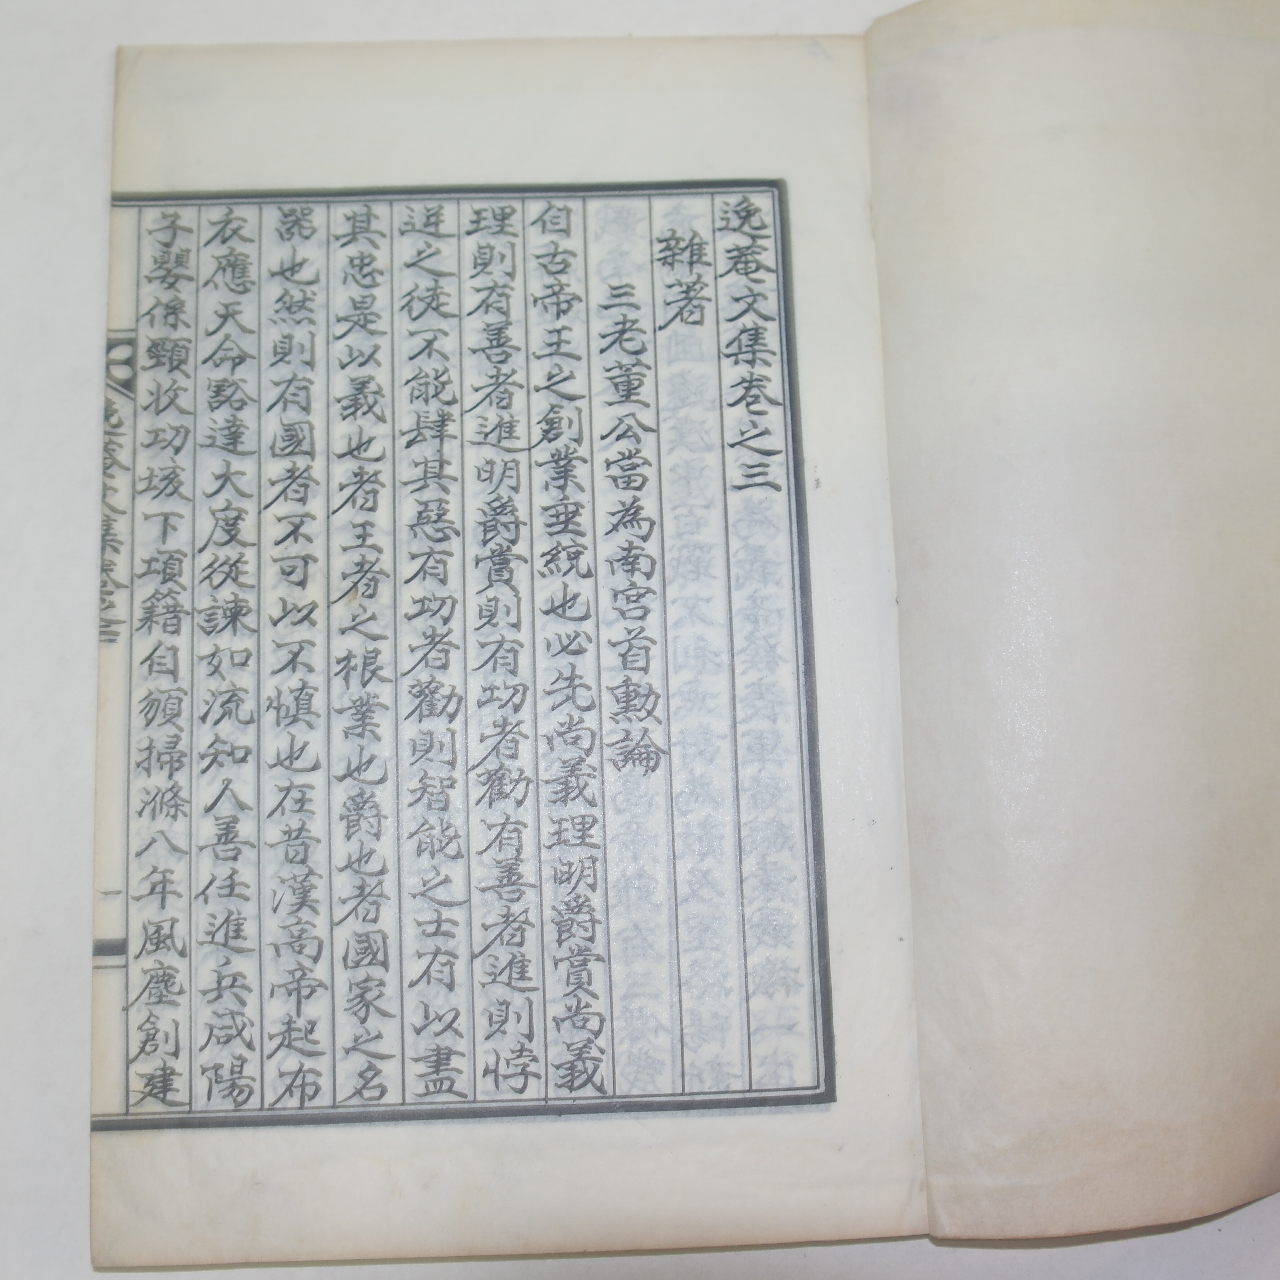 逸菴文集卷之三
雜著
三老董公當為南宮首勳論
自古帝王之創業垂統也必先尚義理明爵賞尚義
理則有善者進明爵賞則有功者勸有善者進則悖
逆之徒不能肆其惡有功者勸則智能之士有以盡
其忠是以義也者王者之根業也爵也者國家之名
器也然則有國者不可以不慎也在昔漢高帝起布
衣應天命豁達大度從諫如流知人善任進兵咸陽
子嬰係頸收功垓下項籍自頒掃滌八年風塵創建
逸菴文集卷之三
一